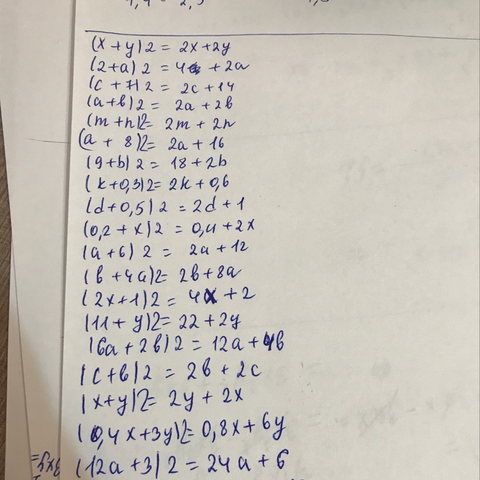 (x+y)2 = 2x+2y
(2+a)2 = 4 + 2a
(c+7)2 = 2c+14
(a+b)2 = 2a+2b
(m+n)2= 2m+2n
(a + 8)2= 2a+16
(9+b)2 = 18+2b
(k+0,3)2= 2k+0,6
(d+0,5)2 = 2d+1
(0,2+x)2 = 0,4+2x
(a+6)2 = 2a+12
(b+4a)2= 2b+8a
(2x+1)2 = 4x+2
(11+y)2= 22+2y
(6a+2b)2 = 12a+4b
(c+b)2 = 2b+2c
(x+y)2= 2y+2x
(0,4x+3y)2= 0,8x+6y
(12a+3)2 = 24a+6